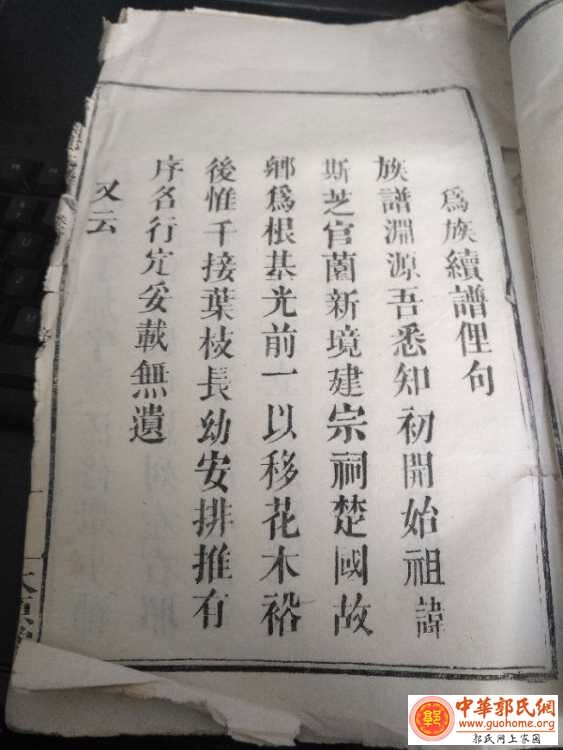 為族續譜俚句
族譜淵源吾悉知初開始祖諱
斯芝官蘭新境建宗祠楚國故
鄉為根基光前一以移花木裕
後惟千接葉枝長幼安排推有
序各行定妥載無遺
又云
中華郭氏網
www.guohome.org
郭氏网上家園